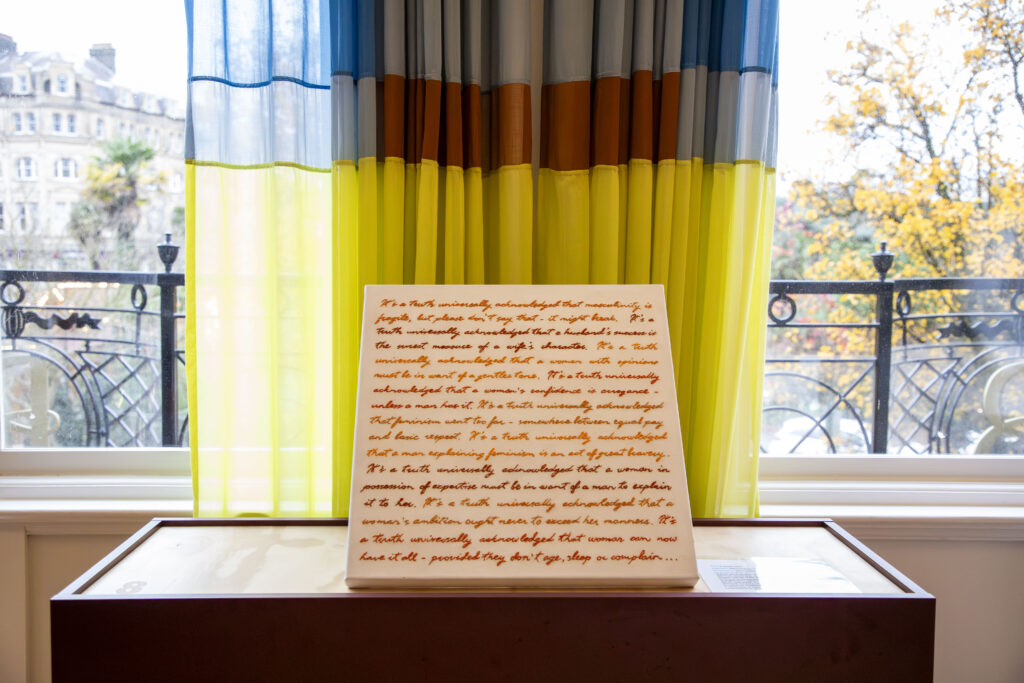 It's a truth universally acknowledged that masculinity is
fragile, but please don't say that - it might break. It's a
truth universally acknowledged that a husband's success is
the surest measure of a wife's character. It's a truth
universally acknowledged that a woman with opinions
must be in want of a gentler tone. It's a truth universally
acknowledged that a woman's confidence is arrogance -
unless a man has it. It's a truth universally acknowledged
that feminism went too far - somewhere between equal pay
and basic respect. It's a truth universally acknowledged
that a man explaining feminism is an act of great bravery.
It's a truth universally acknowledged that a woman in
possession of expertise must be in want of a man to explain
it to her. It's a truth universally acknowledged that a
woman's ambition ought never to exceed her manners. It's
a truth universally acknowledged that woman can now
have it all - provided they don't age, sleep or complain...